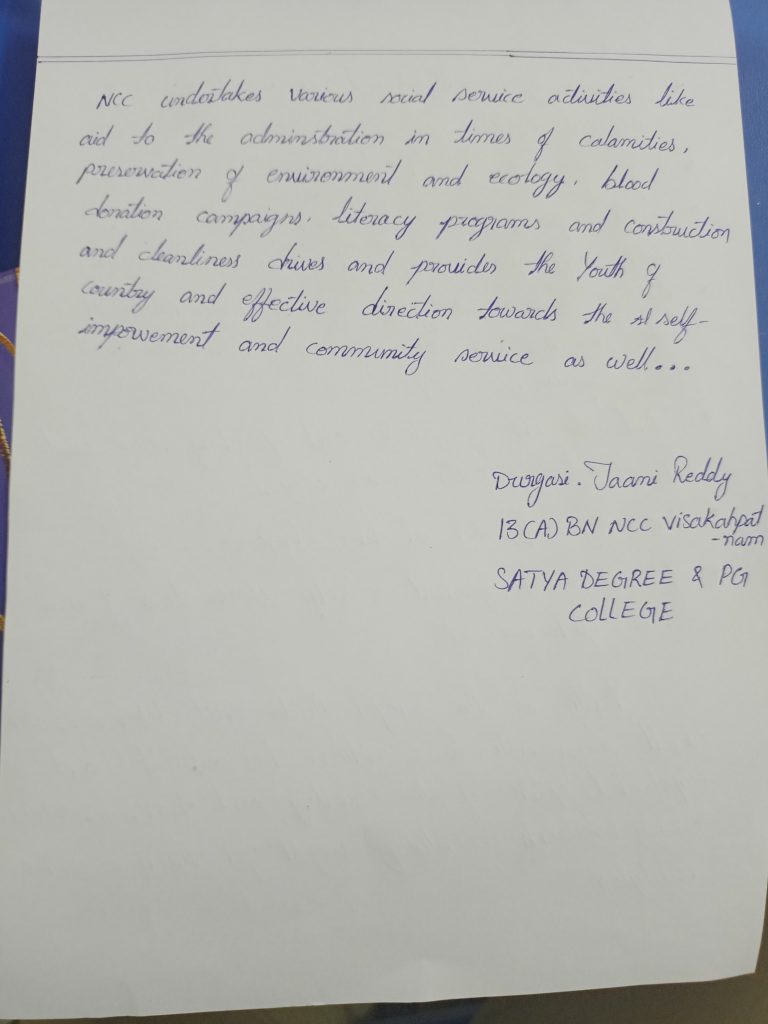 NCC undertakes various social service activities like
aid to the adminstration in times of calamities,
preservation of environment and ecology, blood
donation campaigns, literacy programs and construction
and cleanliness drives and provides the Youth of
country and effective direction towards the self-
impowement and community service as well...
Durgasi. Jaani Reddy
13(A) BN NCC Visakahpat
-nam
SATYA DEGREE & PG
COLLEGE